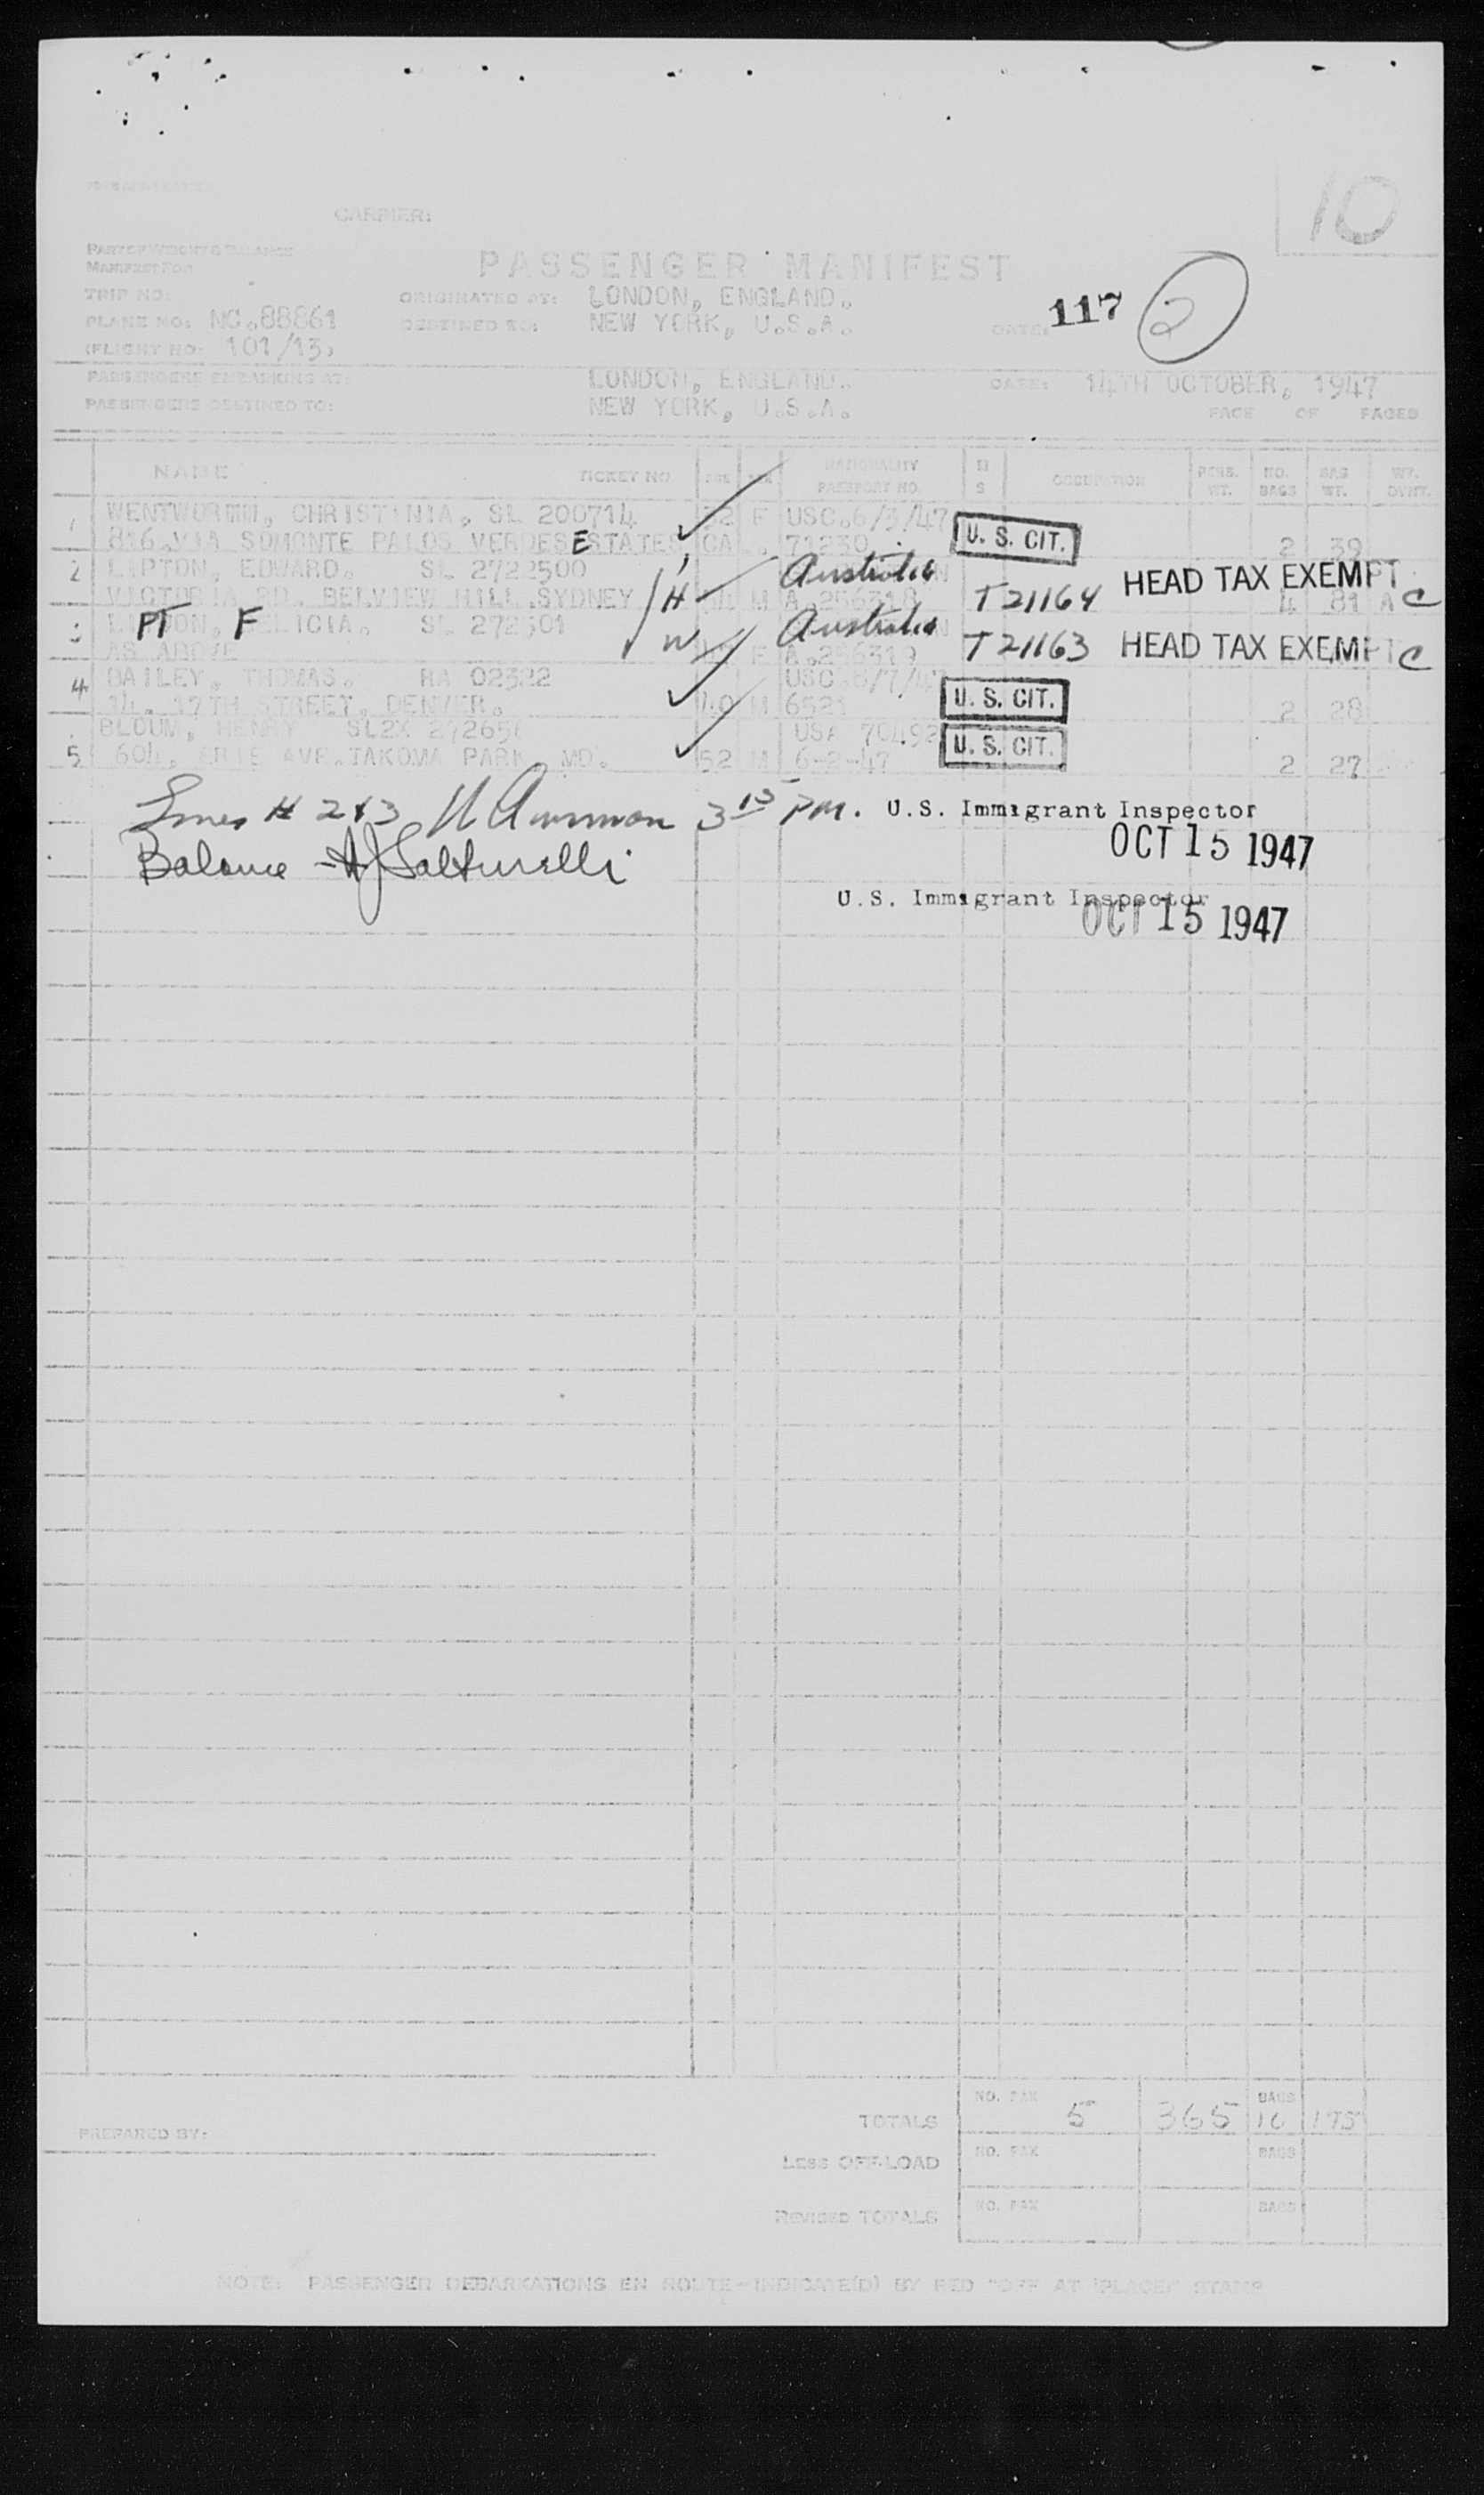 10
CARRIER:
PASSENGER MANIFEST
MANIFEST FOR
TRIP NO: ORIGINATED AT: LONDON, ENGLAND.
PLANE NO: NC.88861 DESTINED TO: NEW YORK, U.S.A. DATE: 117 2
(FLIGHT NO: 101/13)
PASSENGERS EMBARKING AT: LONDON, ENGLAND. DATE: 14TH OCTOBER, 1947
PASSENGERS DESTINED TO: NEW YORK, U.S.A. PAGE OF PAGES
NAME TICKET NO AGE SEX NATIONALITY PASSPORT NO. OCCUPATION PERS. WT. NO. BAGS BAG WT. WT.
1 WENTWORTH, CHRISTINIA, SL 200714 32 F USC.6/3/47
816.VIA SOMONTE PALOS VERDES ESTATES CA. 71230 U. S. CIT. 2 39
2 LIPTON, EDWARD. SL 2722500 Australia
VICTORIA RD. BELVIEW HILL.SYDNEY H M A.256318 T21164 HEAD TAX EXEMPT 4 81 A C
3 PT F ELICIA. SL 272501 Australia
AS ABOVE W F A.256319 T21163 HEAD TAX EXEMPT C
4 BAILEY, THOMAS. RA 02322 USC.8/7/4
14. 17TH STREET, DENVER. 40 M 6521 U. S. CIT. 2 28
BLOUM, HENRY SL2X 27265 USA 70492
5 604, ERIE AVE.TAKOMA PARK, MD. 52 M 6-2-47 U. S. CIT. 2 27
Lines # 2&3 3 15 PM. U.S. Immigrant Inspector
OCT 15 1947
Balance
U.S. Immigrant Inspector
OCT 15 1947
TOTALS NO. PAX 5 365 BAGS 10 175
PREPARED BY:
LESS OFF-LOAD NO. PAX BAGS
REVISED TOTALS NO. PAX BAGS
NOTE: PASSENGER DEBARKATIONS EN ROUTE-INDICATE(D) BY RED "OFF AT (PLACE)" STAMP